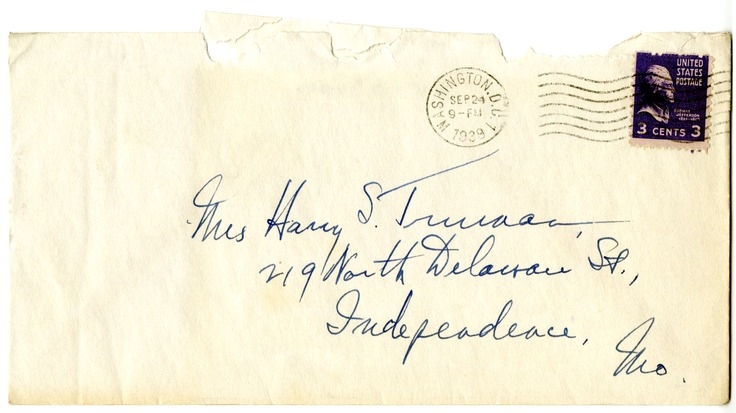 WASHINGTON, D.C. 1
SEP 24
9-PM
1939
UNITED
STATES
POSTAGE
THOMAS
JEFFERSON
3 CENTS 3
Mrs Harry S. Truman,
219 North Delaware St.,
Independence,
Mo.